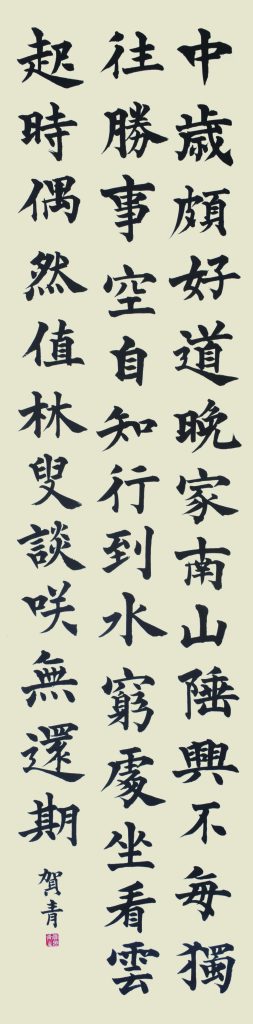 中歳頗好道晚家南山陲興不每獨
往勝事空自知行到水窮處坐看雲
起時偶然值林叟談咲無還期
賀青